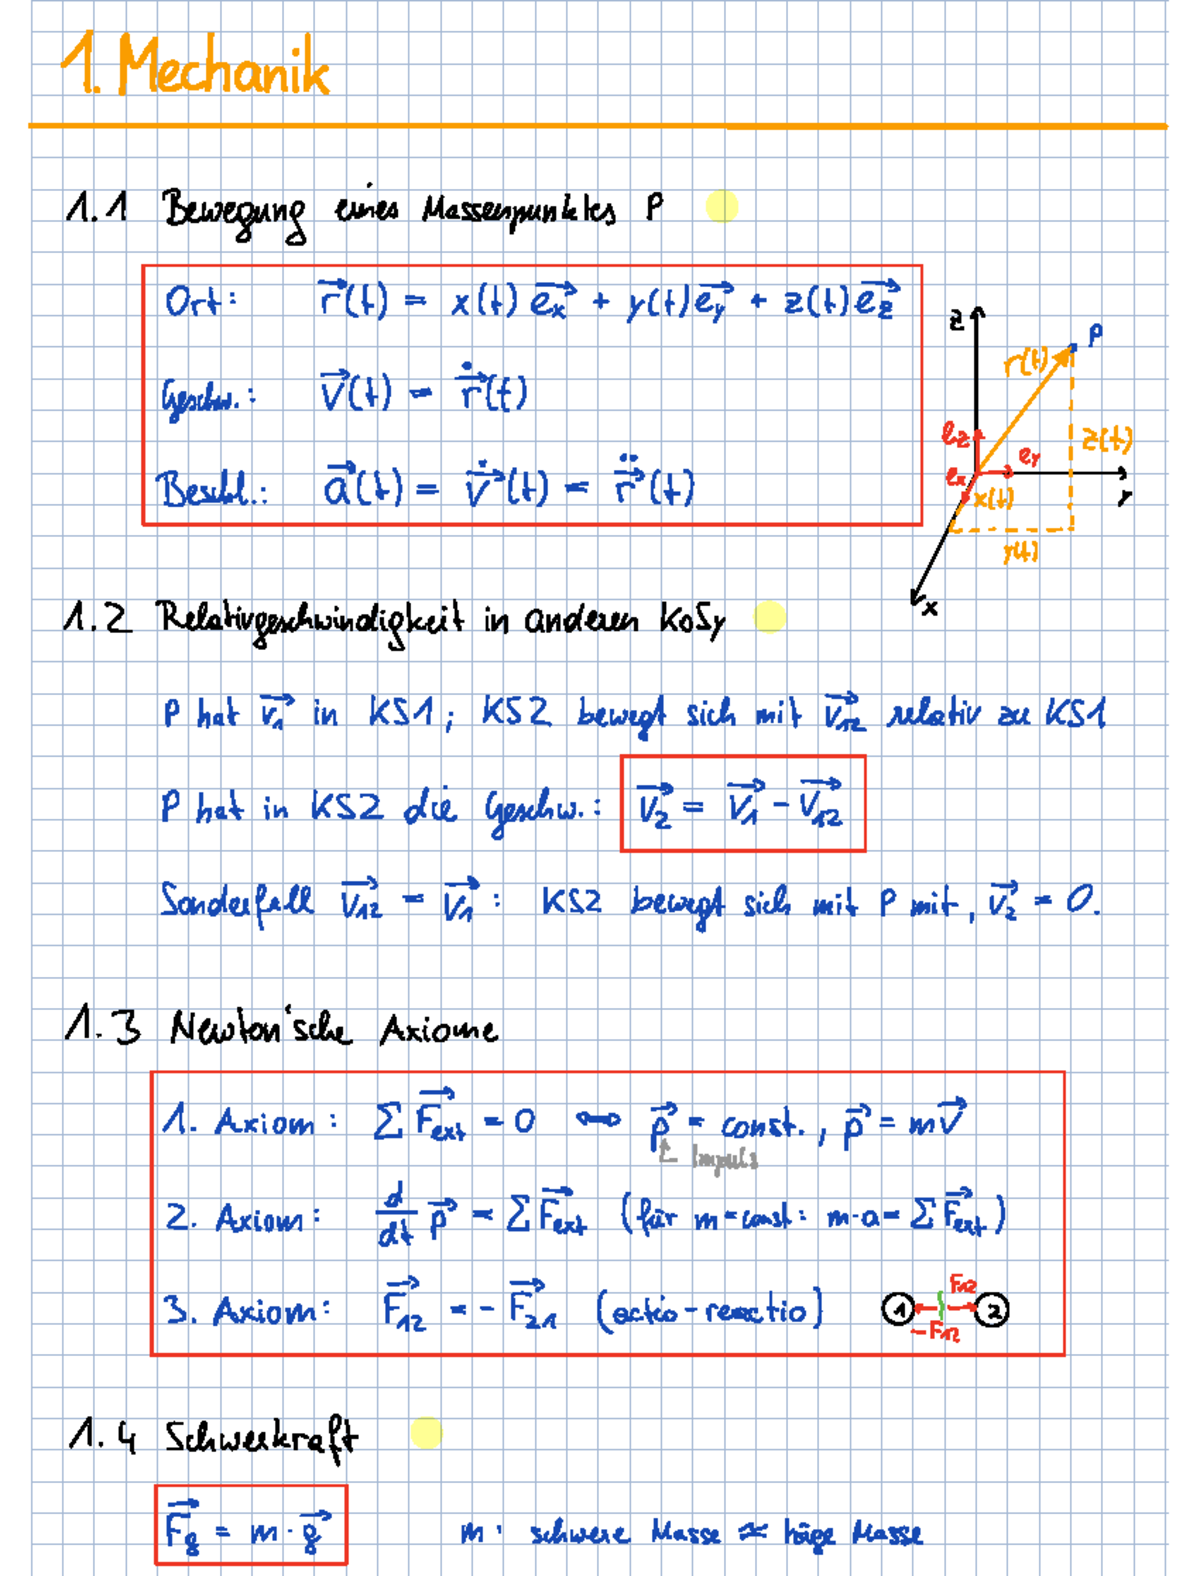 1. Mechanik
1.1 Bewegung eines Massenpunktes P
Ort: r⃗(t) = x(t) e⃗x + y(t) e⃗y + z(t) e⃗z
Geschw.: v⃗(t) = ṙ⃗(t)
Beschl.: a⃗(t) = v̇⃗(t) = r̈⃗(t)
z
P
r(t)
ez
z(t)
ey
ex
x(t)
y
y(t)
x
1.2 Relativgeschwindigkeit in anderen KoSy
P hat v⃗1 in KS1; KS2 bewegt sich mit v⃗12 relativ zu KS1
P hat in KS2 die Geschw.: v⃗2 = v⃗1 - v⃗12
Sonderfall v⃗12 = v⃗1: KS2 bewegt sich mit P mit, v⃗2 = 0.
1.3 Newton'sche Axiome
1. Axiom: ∑ F⃗ext = 0 ⟺ p⃗ = const., p⃗ = mv⃗
Impuls
2. Axiom: d/dt p⃗ = ∑ F⃗ext (für m = const: m·a = ∑ F⃗ext)
3. Axiom: F⃗12 = - F⃗21 (actio-reactio)
F12
1 2
-F12
1.4 Schwerkraft
F⃗g = m · g⃗ m: schwere Masse ≈ träge Masse